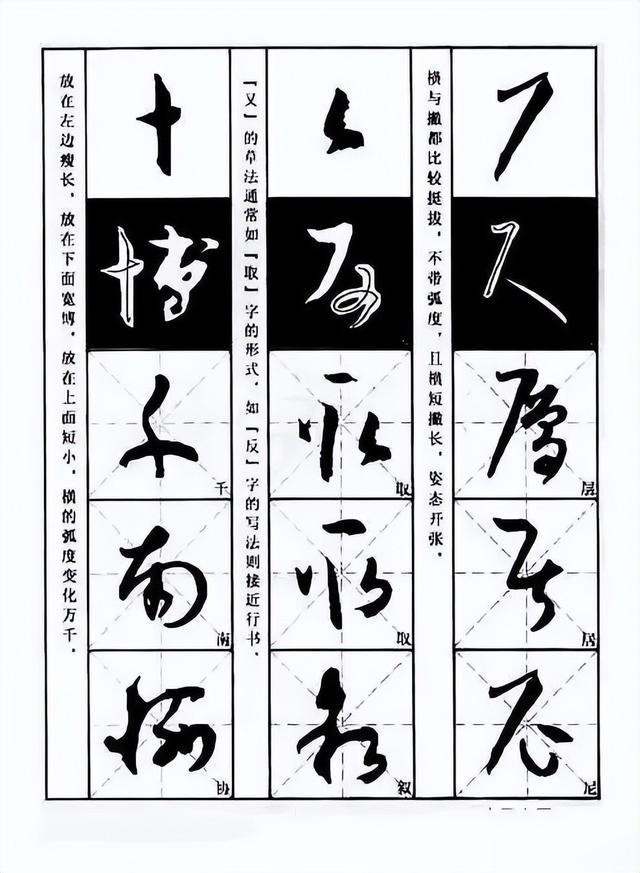 尸
尺
层 层
居 居
尼 尼
横与撇都比较挺拔，不带弧度，且横短撇长，姿态开张。
又
反
取 取
取 取
叙 叙
「又」的草法通常如「取」字的形式，如「反」字的写法则接近行书。
十
博
千 千
南 南
协 协
放在左边瘦长，放在下面宽博，放在上面短小，横的弧度变化万千。